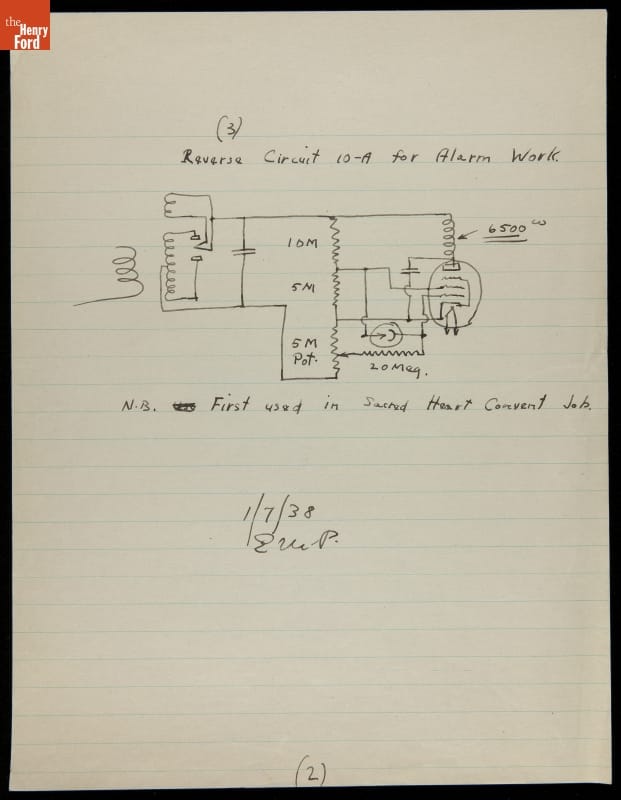 the
Henry
Ford
(3)
Reverse Circuit 10-A for Alarm Work.
10M
6500 ω
5M
5M
Pot.
20 Meg.
N.B. First used in Sacred Heart Convent Job.
1/7/38
E.M.P.
(2)